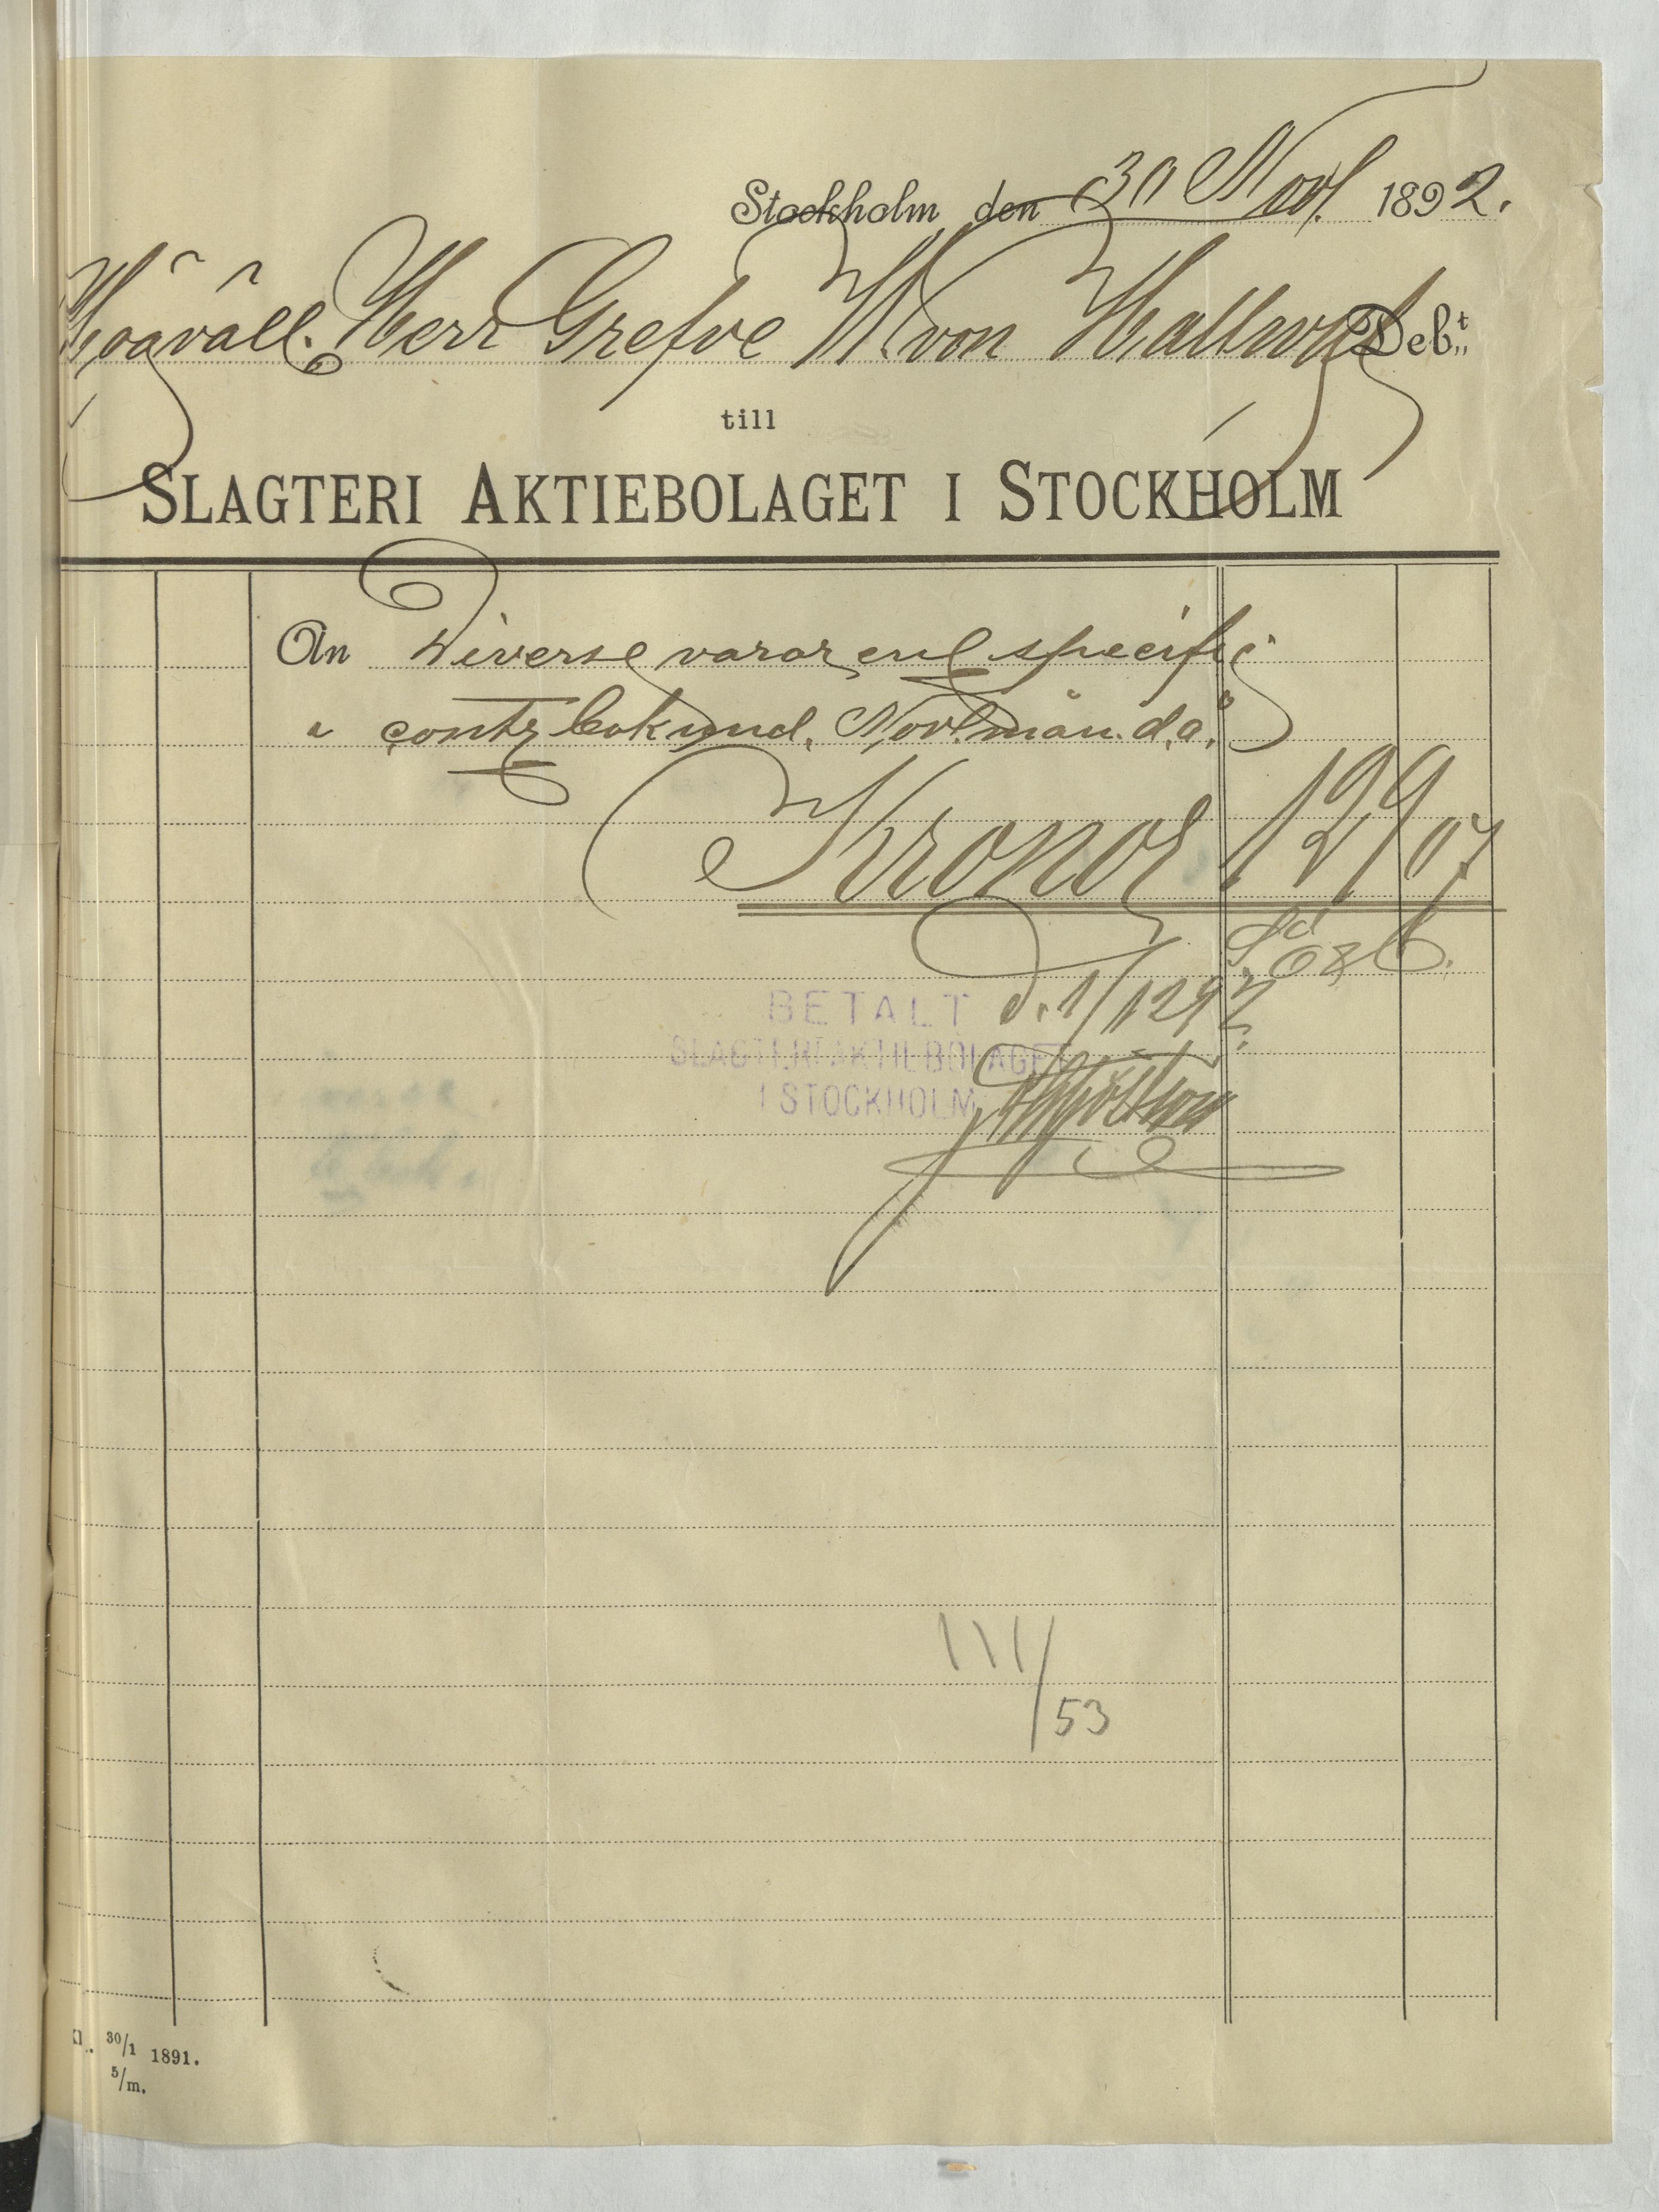 Stockholm den 30 Nov. 1892.
Högväll. Herr Grefve W. von Hallwyl Deb:t
till
SLAGTERI AKTIEBOLAGET I STOCKHOLM
An Diverse varor enl specif i
" contrabok und. Nov. mån. d.å.
Kronor 129 07
BETALT d. 1/12 92
SLAGTERIAKTIEBOLAGET
I STOCKHOLM
111/53
30/1 1891.
5/m.